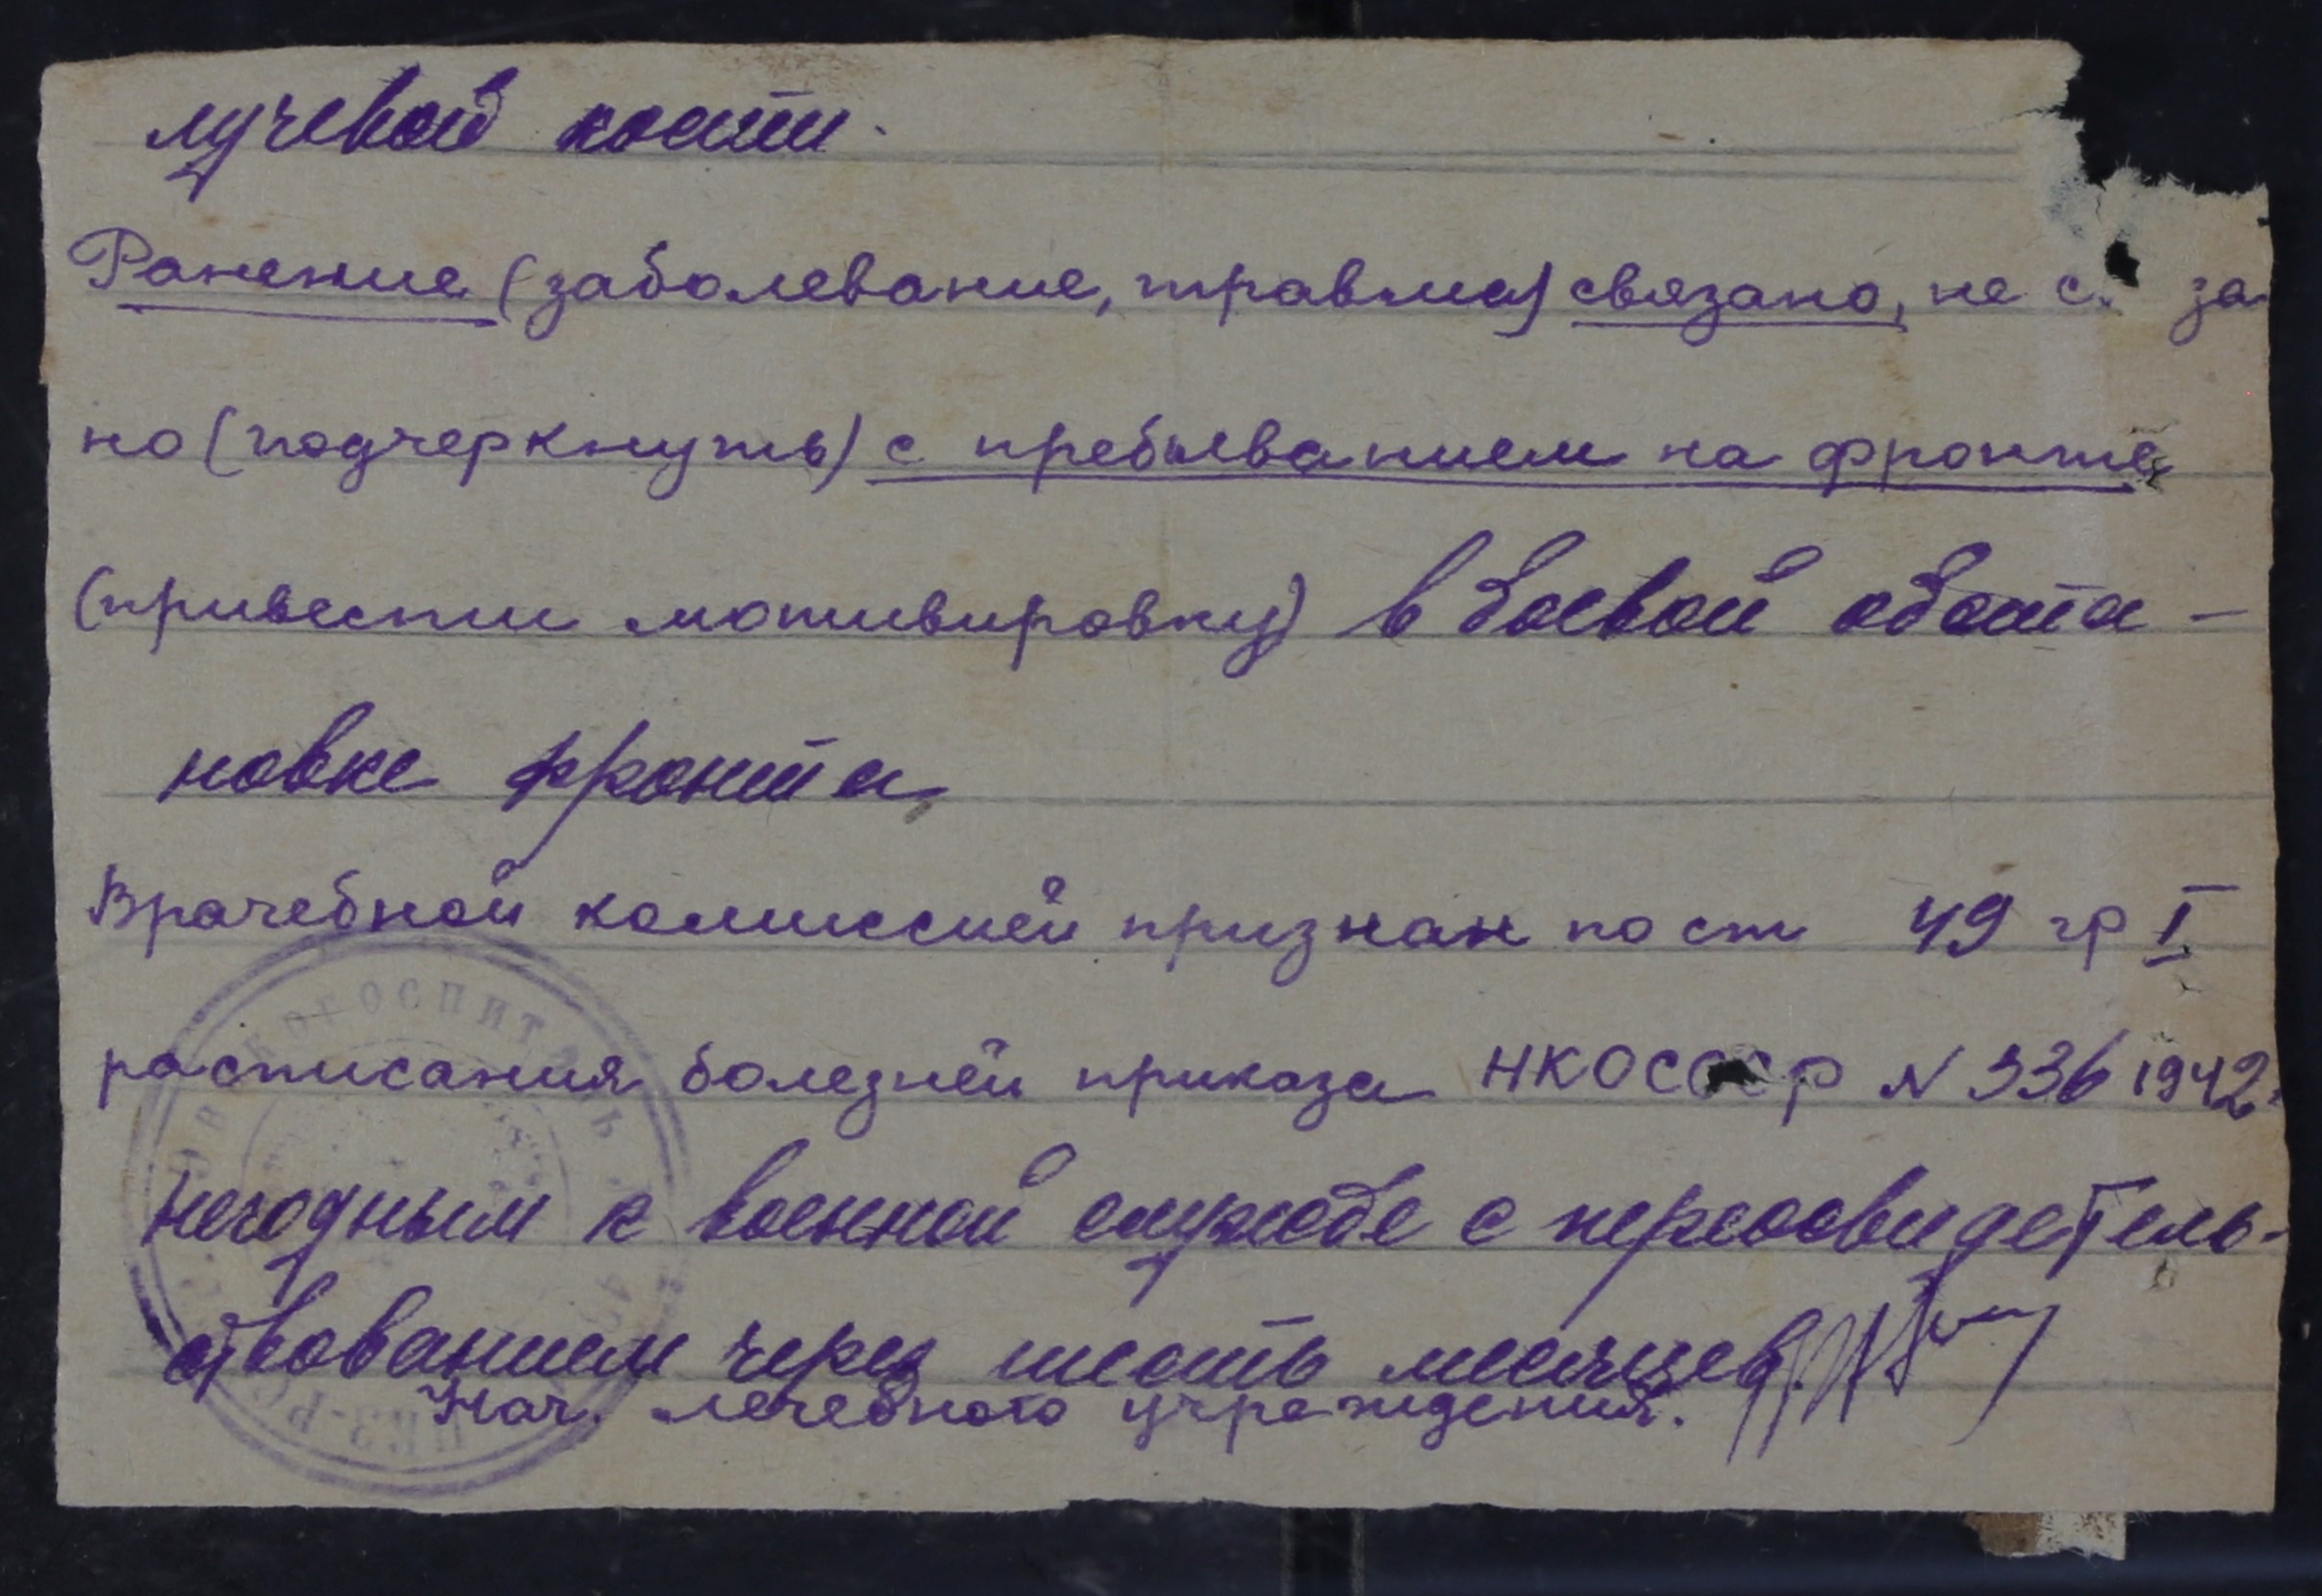 лучевой кости.
Ранение (заболевание, травма) связано, не с за
но (подчеркнуть) с пребыванием на фронте
(привести мотивировку) в боевой обста-
новке фронта
Врачебной комиссией признан по ст 49 гр I
расписания болезней приказа НКО СССР N 336 1942
негодным к военной службе с переосвидетель-
ствованием через шесть месяцев.
Нач. лечебного учреждения.